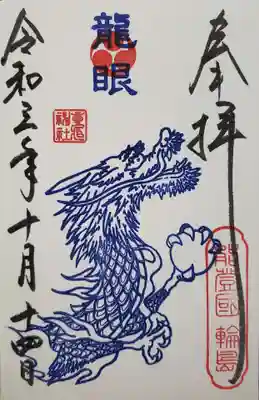 奉拝
能登國 輪島
龍眼
重蔵神社
令和三年十月十四日